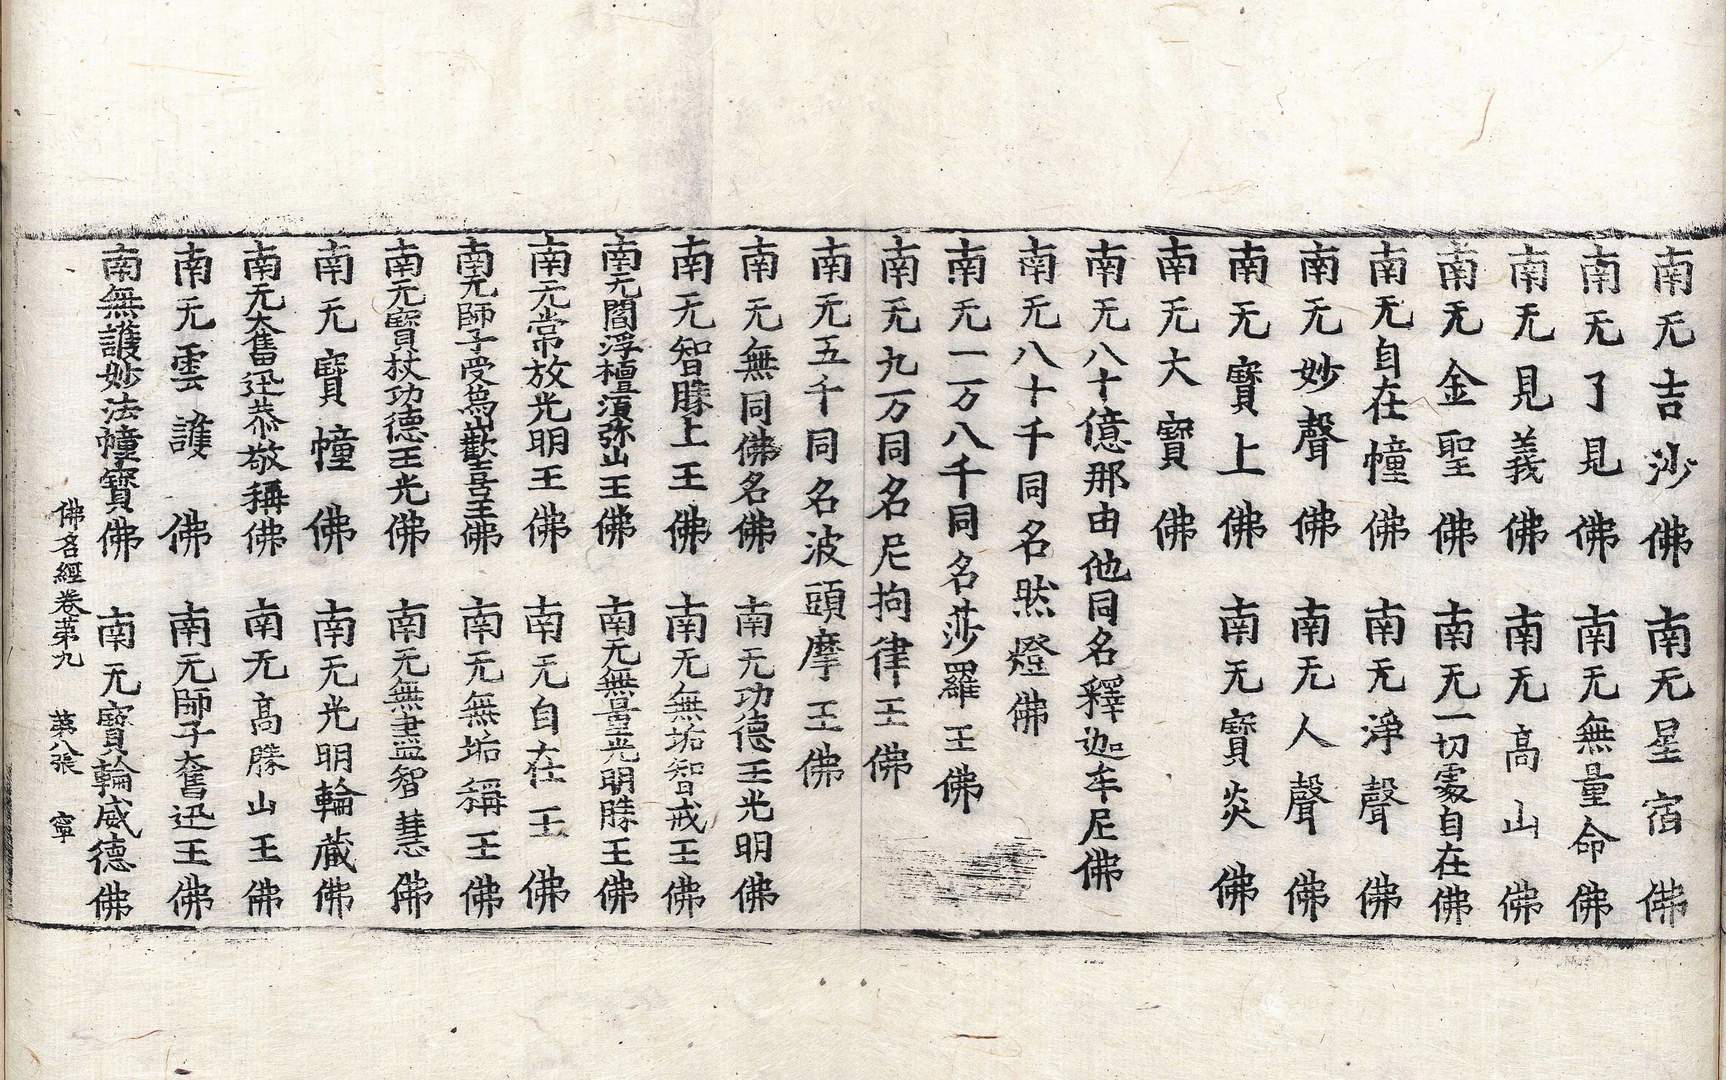 南无吉沙佛 南无星宿佛
南无了見佛 南无無量命佛
南无見義佛 南无高山佛
南无金聖佛 南无一切處自在佛
南无自在幢佛 南无淨聲佛
南无妙聲佛 南无人聲佛
南无寶上佛 南无寶炎佛
南无大寶佛
南无八十億那由他同名釋迦牟尼佛
南无八十千同名然燈佛
南无一万八千同名莎羅王佛
南无九万同名尼拘律王佛
南无五千同名波頭摩王佛
南无無同佛名佛 南无功德王光明佛
南无智勝上王佛 南无無垢智戒王佛
南无閻浮檀湏弥山王佛 南无無量光明勝王佛
南元常放光明王佛 南无自在王佛
南无師子受為歡喜王佛 南无無垢稱王佛
南无寶杖功德王光佛 南无無盡智慧佛
南无寶幢佛 南无光明輪藏佛
南无大奮迅恭敬稱佛 南无高勝山王佛
南无雲護佛 南无師子奮迅王佛
南無護妙法幢寶佛 南无寶輪威德佛
佛名經卷第九 第八張 寧